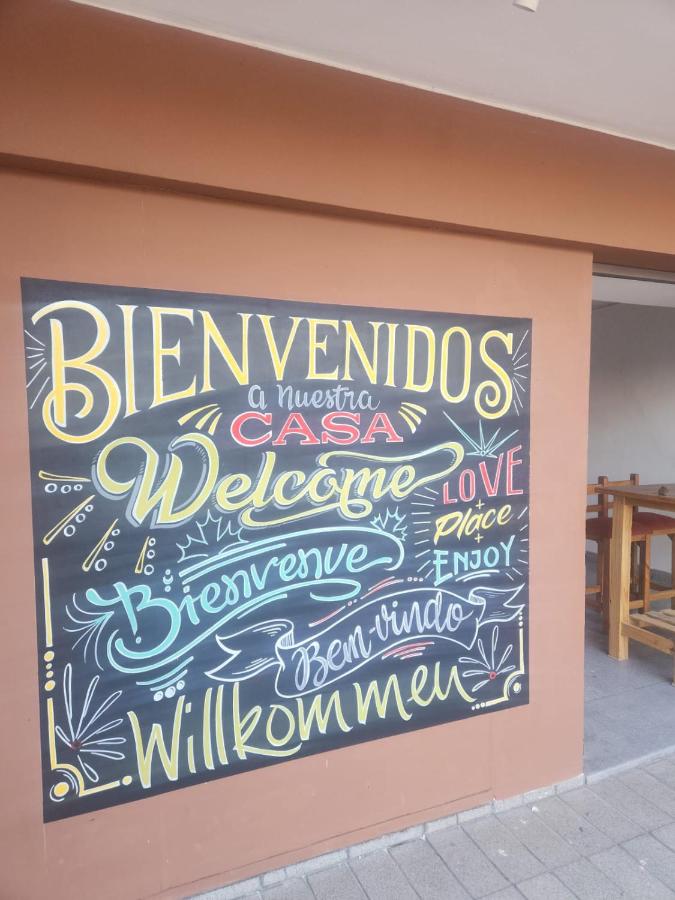 BIENVENIDOS
A Nuestra
CASA
Welcome
LOVE
+
Place
+
ENJOY
Bienvenue
Bem-vindo
Willkommen